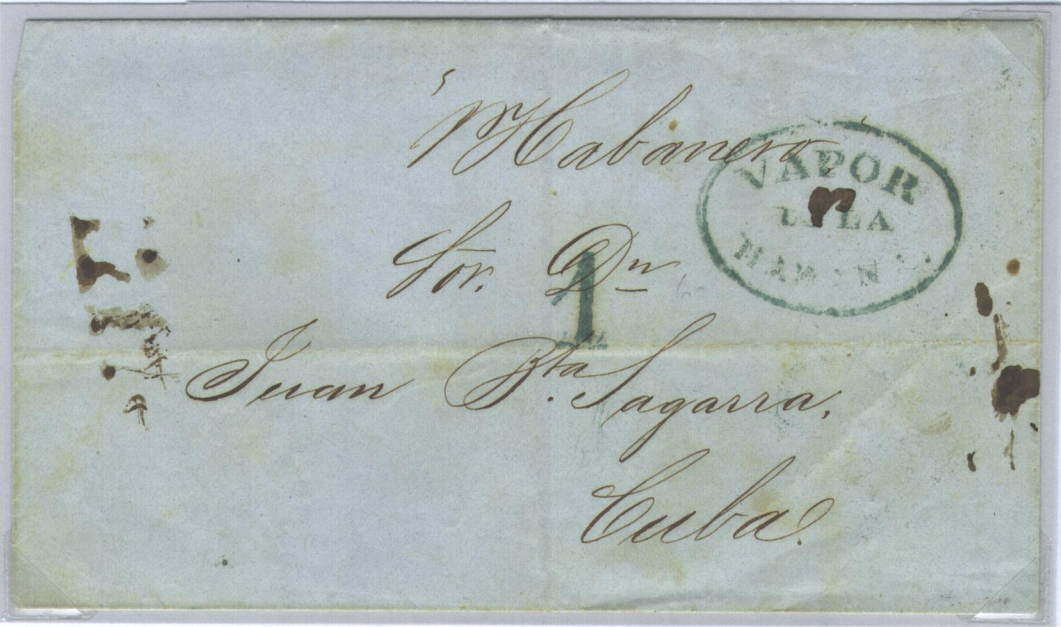 pr Habanero
VAPOR
DE LA
HABANA.
Sor. Dn
1
Juan Bta Sagarra.
Cuba.